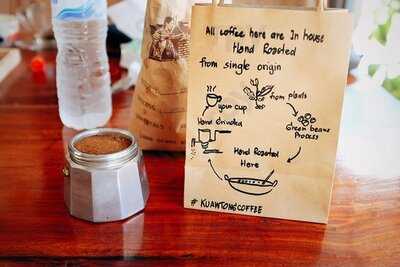 All coffee here are In house
Hand Roasted
from single origin
from plants
your cup
Green beans
Process
Hand Grinded
Hand Roasted
Here
# KUANTONGCOFFEE